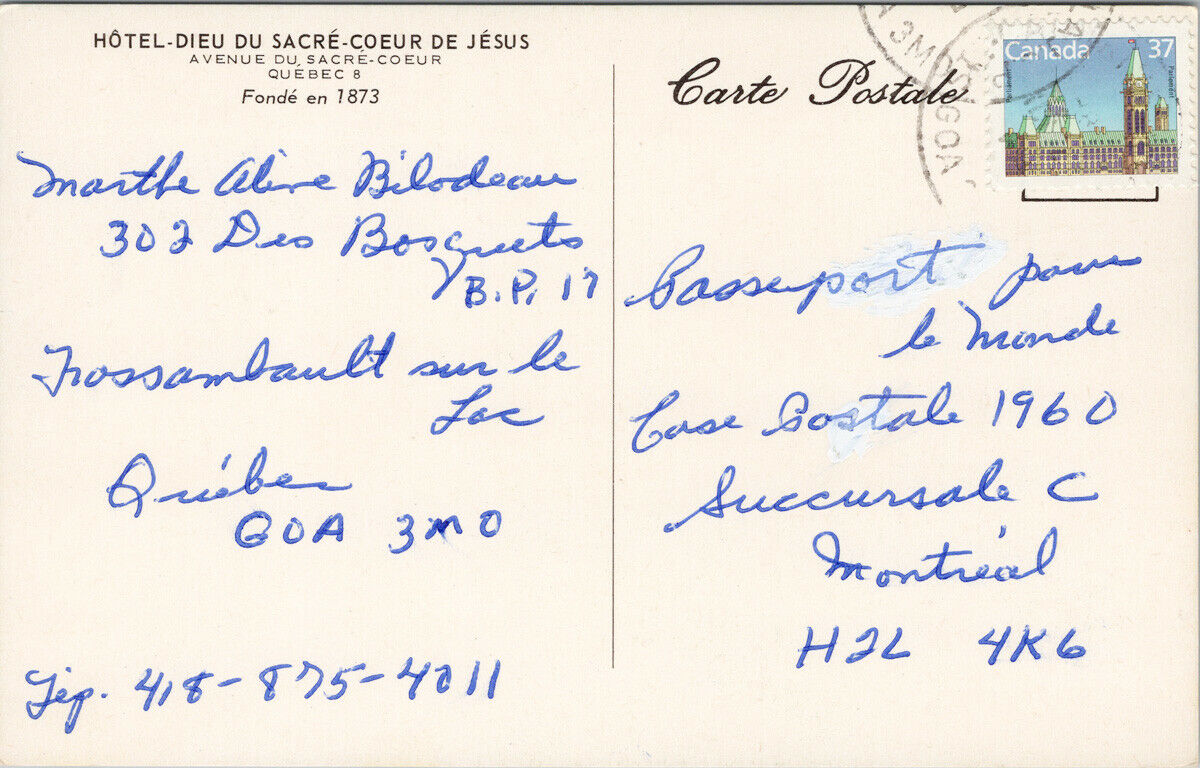 HÔTEL-DIEU DU SACRÉ-COEUR DE JÉSUS
AVENUE DU SACRÉ-COEUR
QUÉBEC 8
Fondé en 1873
Marthe Aline Bilodeau
302 Des Bosquets
B.P. 17
Fossambault sur le
Lac
Québec
G0A 3M0
Tép. 418-875-4011
Carte Postale
Canada 37
Parliament
Parlement
3M0 G0A
Passeport pour
le Monde
Case Postale 1960
Succursale C
Montréal
H2L 4K6